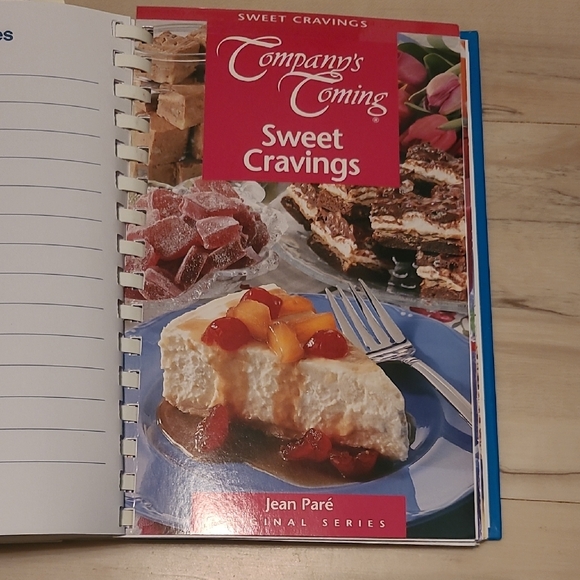 es
SWEET CRAVINGS
Company's
Coming
®
Sweet
Cravings
Jean Paré
INAL SERIES